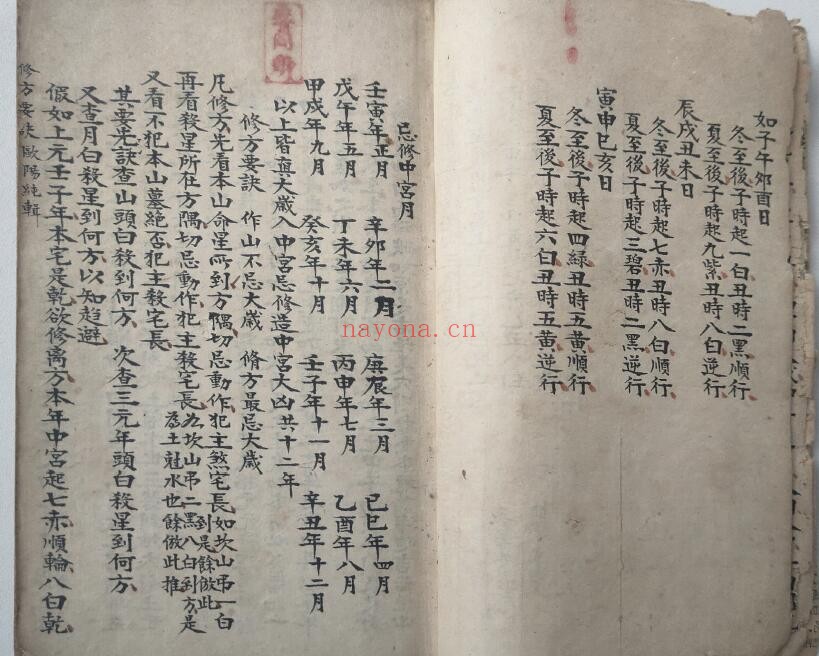 如子午夘酉日
冬至後子時起一白丑時二黑順行
夏至後子時起九紫丑時八白逆行
辰戌丑未日
冬至後子時起七赤丑時八白順行
夏至後子時起三碧丑時二黑逆行
寅申巳亥日
冬至後子時起四綠丑時五黃順行
夏至後子時起六白丑時五黃逆行
忌修中宮月
壬寅年正月 辛卯年二月 庚辰年三月 己巳年四月
戊午年五月 丁未年六月 丙申年七月 乙酉年八月
甲戌年九月 癸亥年十月 壬子年十一月 辛丑年十二月
以上皆真大歲入中宮忌修造中宮大凶共十二年
修方要訣 作山不忌大歲 脩方最忌大歲
凡修方先看本山命星所到方隅切忌動作犯主煞宅長如坎山弔一白到是餘倣此
再看殺星所在方隅切忌動作犯主殺宅長為坎山弔二黑八白到方是為土尅水也餘倣此推
又看不犯本山墓絕否犯主殺宅長
其要先訣查山頭白殺到何方 次查三元年頭白殺星到何方
又查月白殺星到何方以知趨避
假如上元壬子年本宅是乾欲修离方本年中宮起七赤順輪八白乾
修方要訣歐陽純輯
nayona.cn